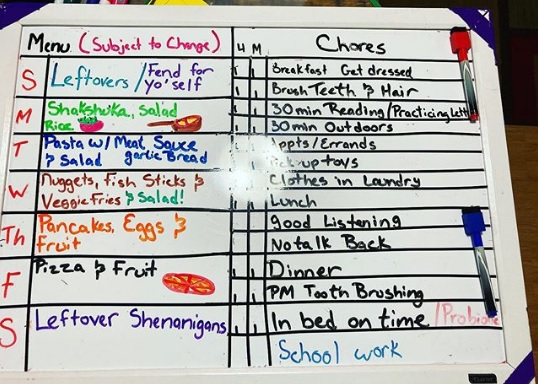 Menu (Subject to Change)
S Leftovers / Fend for yo'self
M Shakshuka, Salad
Rice
T Pasta w/ Meat Sauce
& Salad garlic Bread
W Nuggets, Fish Sticks &
Veggie Fries & Salad!
Th Pancakes, Eggs &
Fruit
F Pizza & Fruit
S Leftover Shenanigans
H M Chores
Breakfast Get dressed
Brush Teeth & Hair
30 min Reading/Practicing
30 min Outdoors
Appts/Errands
Pick-up toys
Clothes in Laundry
Lunch
Good Listening
No talk Back
Dinner
PM Tooth Brushing
In bed on time
School work